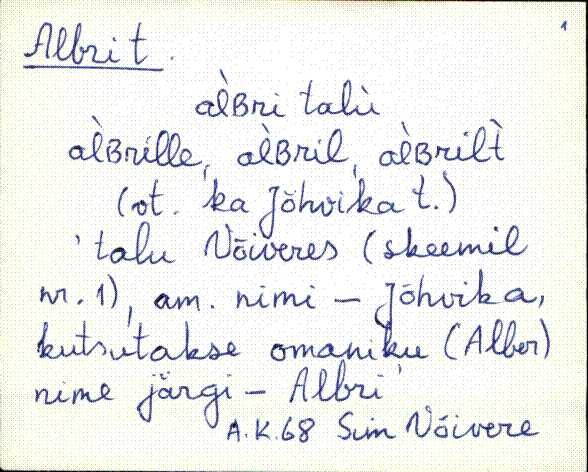 1
Albri t.
àl̀ʙri talù
àl̀ʙrille, àl̀ʙril, àl̀ʙrilt̀
(vt. ka Jõhvika t.)
talu Võiveres (skeemil
nr. 1), am. nimi – Jõhvika,
kutsutakse omaniku (Alber)
nime järgi – Albri
A.K.68 Sim Võivere